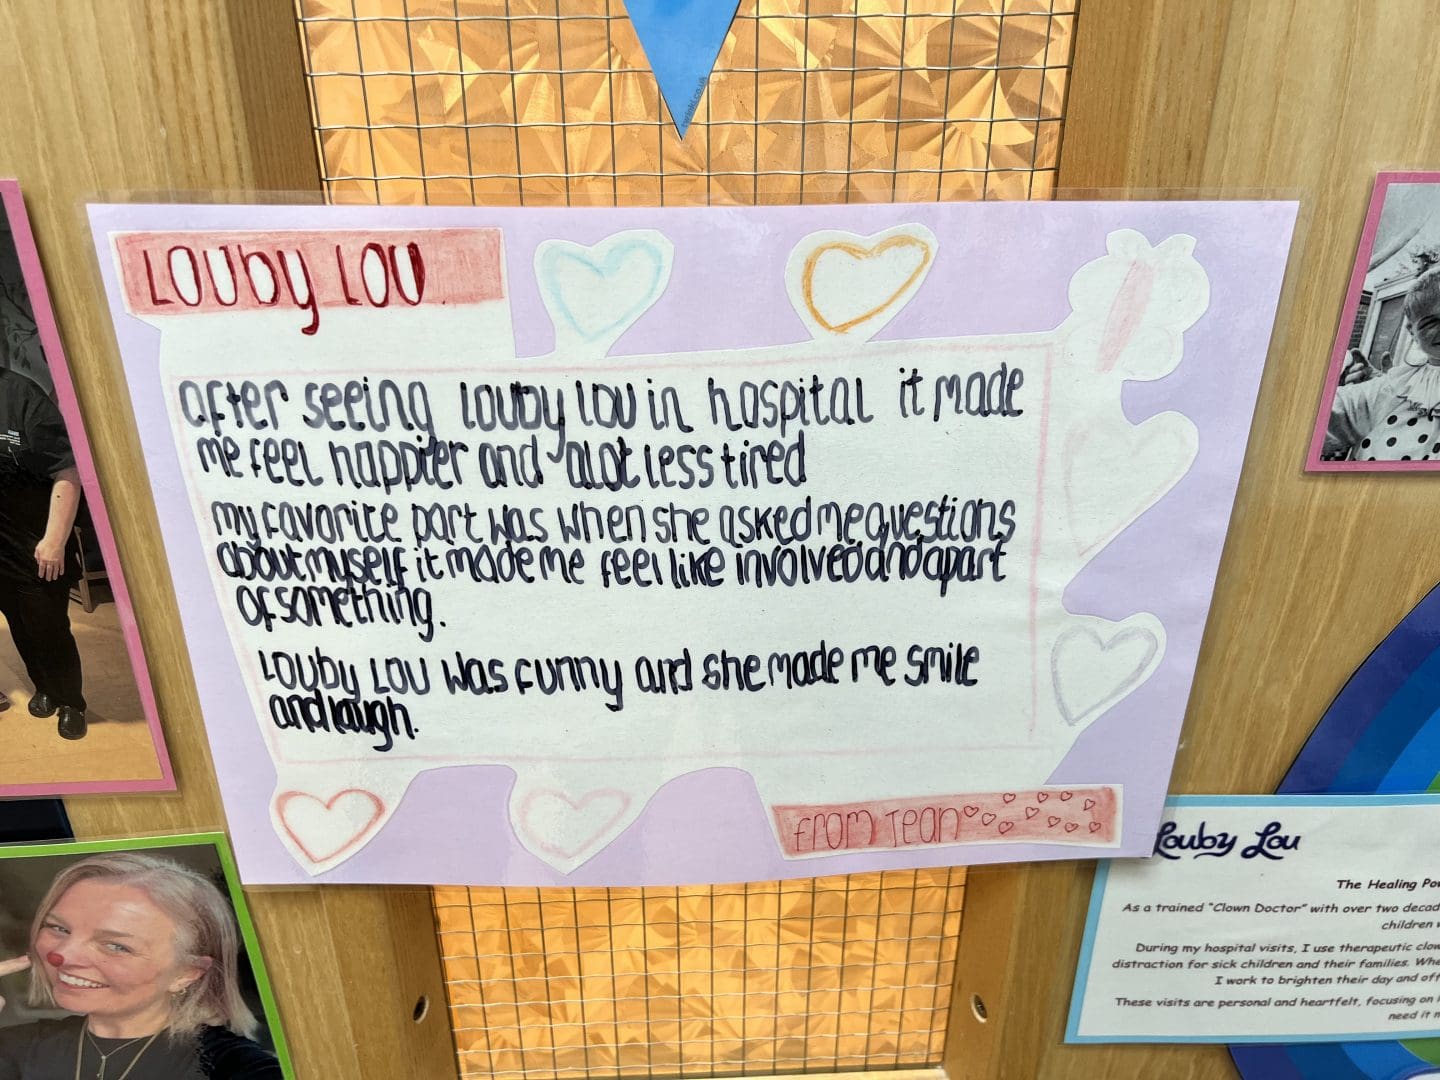 twinkl.co.uk
LOUBY LOU
after seeing Louby Lou in hospital it made
me feel happier and alot less tired
my favorite part was when she asked me questions
about myself it made me feel like involved and apart
of something.
Louby Lou was funny and she made me smile
and laugh.
from Tean
Louby Lou
The Healing
As a trained "Clown Doctor" with over two
children
During my hospital visits, I use therapeutic
distraction for sick children and their families.
I work to brighten their day and
These visits are personal and heartfelt, focusing on
need it